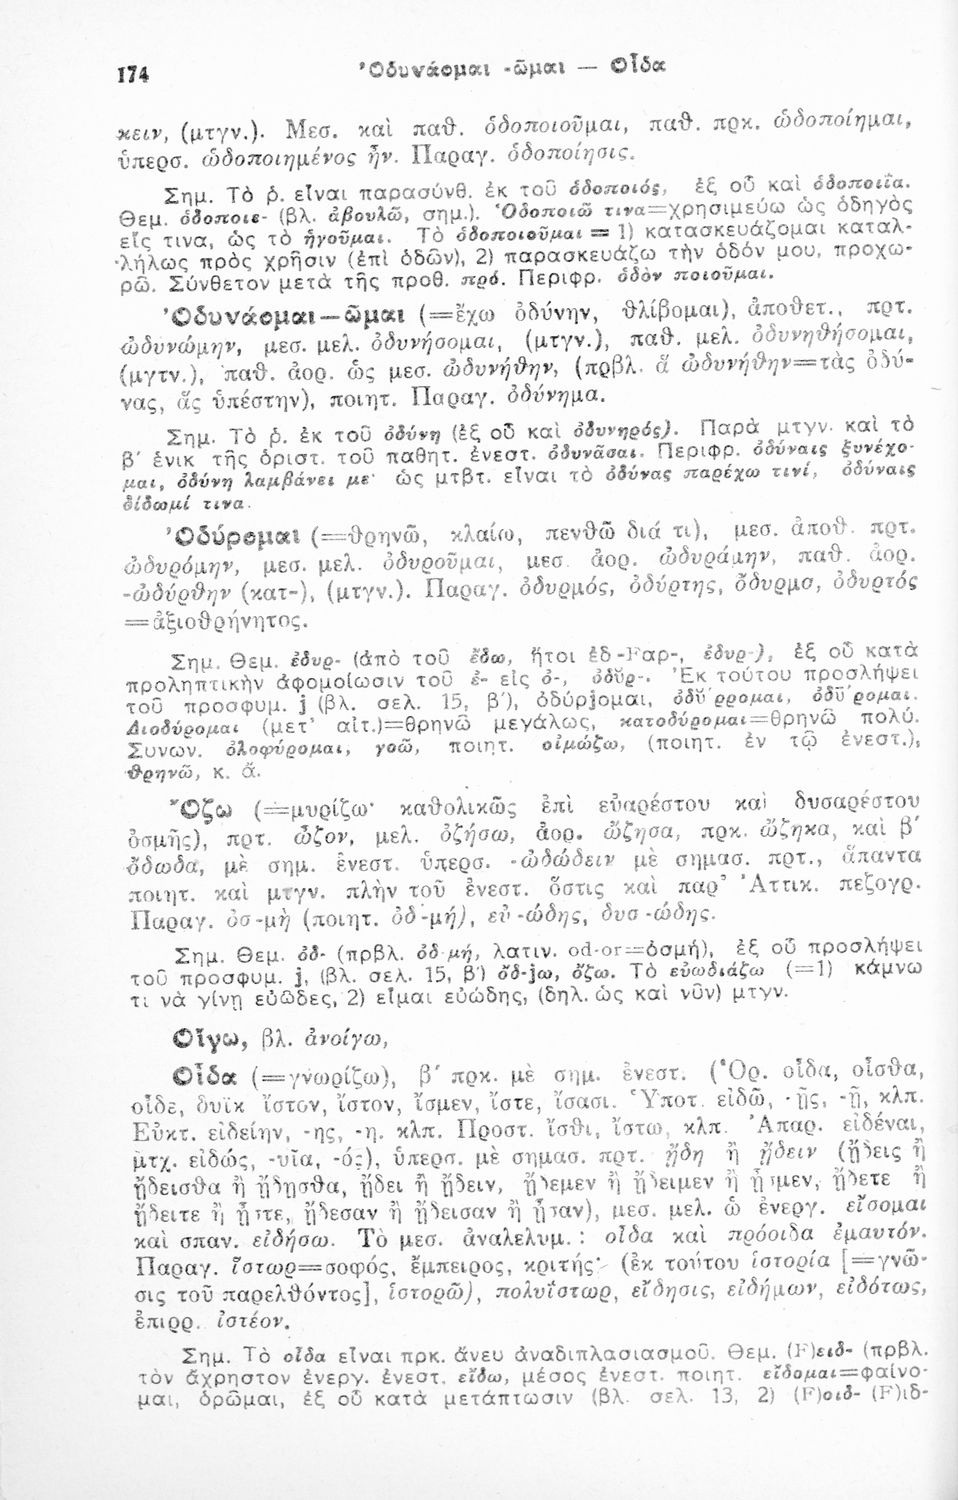 174
Ὀδυνάομαι -ῶμαι — Οἶδα
κειν, (μτγν.). Μεσ. καὶ παθ. ὁδοποιοῦμαι, παθ. πρκ. ὡδοποίημαι,
ὑπερσ. ὡδοποιημένος ἦν. Παραγ. ὁδοποίησις.
Σημ. Τὸ ρ. εἶναι παρασύνθ. ἐκ τοῦ ὁδοποιός, ἐξ οὗ καὶ ὁδοποιΐα.
Θεμ. ὁδοποιε- (βλ. ἀβουλῶ, σημ.). Ὁδοποιῶ τινα=χρησιμεύω ὡς ὁδηγὸς
εἴς τινα, ὡς τὸ ἡγοῦμαι. Τὸ ὁδοποιοῦμαι = 1) κατασκευάζομαι καταλ-
λήλως πρὸς χρῆσιν (ἐπὶ ὁδῶν), 2) παρασκευάζω τὴν ὁδόν μου, προχω-
ρῶ. Σύνθετον μετὰ τῆς προθ. πρό. Περιφρ. ὁδὸν ποιοῦμαι.
Ὀδυνάομαι—ῶμαι (=ἔχω ὀδύνην, θλίβομαι), ἀποθετ., πρτ.
ὠδυνώμην, μεσ. μελ. ὀδυνήσομαι, (μτγν.), παθ. μελ. ὀδυνηθήσομαι,
(μγτν.), παθ. ἀορ. ὡς μεσ. ὠδυνήθην, (πρβλ. ἃ ὠδυνήθην=τὰς ὀδύ-
νας, ἃς ὑπέστην), ποιητ. Παραγ. ὀδύνημα.
Σημ. Τὸ ρ. ἐκ τοῦ ὀδύνη (ἐξ οὗ καὶ ὀδυνηρός). Παρὰ μτγν. καὶ τὸ
β′ ἑνικ τῆς ὁριστ. τοῦ παθητ. ἐνεστ. ὀδυνᾶσαι. Περιφρ. ὀδύναις ξυνέχο-
μαι, ὀδύνη λαμβάνει με· ὡς μτβτ. εἶναι τὸ ὀδύνας παρέχω τινί, ὀδύναις
δίδωμί τινα.
Ὀδύρομαι (=θρηνῶ, κλαίω, πενθῶ διά τι), μεσ. ἀποθ. πρτ.
ὠδυρόμην, μεσ. μελ. ὀδυροῦμαι, μεσ. ἀορ. ὠδυράμην, παθ. ἀορ.
-ὠδύρθην (κατ-), (μτγν.). Παραγ. ὀδυρμός, ὀδύρτης, ὄδυρμα, ὀδυρτός
=ἀξιοθρήνητος.
Σημ. Θεμ. ἐδυρ- (ἀπὸ τοῦ ἔδω, ἤτοι ἐδ-Fαρ-, ἐδυρ-), ἐξ οὗ κατὰ
προληπτικὴν ἀφομοίωσιν τοῦ ἐ- εἰς ὀ-, ὀδῠρ-. Ἐκ τούτου προσλήψει
τοῦ προσφυμ. j (βλ. σελ. 15, β′), ὀδύρjομαι, ὀδύρρομαι, ὀδύρομαι.
Διοδύρομαι (μετ’ αἰτ.)=θρηνῶ μεγάλως, κατοδύρομαι=θρηνῶ πολύ.
Συνων. ὀλοφύρομαι, γοῶ, ποιητ. οἰμώζω, (ποιητ. ἐν τῷ ἐνεστ.),
θρηνῶ, κ. ἄ.
Ὄζω (=μυρίζω· καθολικῶς ἐπὶ εὐαρέστου καὶ δυσαρέστου
ὀσμῆς), πρτ. ὦζον, μελ. ὀζήσω, ἀορ. ὤζησα, πρκ. ὤζηκα, καὶ β′
ὄδωδα, μὲ σημ. ἐνεστ. ὑπερσ. -ὠδώδειν μὲ σημασ. πρτ., ἅπαντα
ποιητ. καὶ μτγν. πλὴν τοῦ ἐνεστ. ὅστις καὶ παρ’ Ἀττικ. πεζογρ.
Παραγ. ὀσ-μὴ (ποιητ. ὀδ-μή), εὐ-ώδης, δυσ-ώδης.
Σημ. Θεμ. ὀδ- (πρβλ. ὀδ-μή, λατιν. od-or=ὀσμή), ἐξ οὗ προσλήψει
τοῦ προσφυμ. j, (βλ. σελ. 15, β′) ὄδ-jω, ὄζω. Τὸ εὐωδιάζω (=1) κάμνω
τι νὰ γίνῃ εὐῶδες, 2) εἶμαι εὐώδης, (δηλ. ὡς καὶ νῦν) μτγν.
Οἴγω, βλ. ἀνοίγω,
Οἶδα (=γνωρίζω), β′ πρκ. μὲ σημ. ἐνεστ. (Ὁρ. οἶδα, οἶσθα,
οἶδε, δυϊκ ἴστον, ἴστον, ἴσμεν, ἴστε, ἴσασι. Ὑποτ. εἰδῶ, -ῇς, -ῇ, κλπ.
Εὐκτ. εἰδείην, -ης, -η. κλπ. Προστ. ἴσθι, ἴστω, κλπ. Ἀπαρ. εἰδέναι,
μτχ. εἰδώς, -υῖα, -ός), ὑπερσ. μὲ σημασ. πρτ. ᾔδη ἢ ᾔδειν (ᾔδεις ἢ
ᾔδεισθα ἢ ᾔδησθα, ᾔδει ἢ ᾔδειν, ᾔδεμεν ἢ ᾔδειμεν ἢ ᾖσμεν, ᾔδετε ἢ
ᾔδειτε ἢ ᾖστε, ᾔδεσαν ἢ ᾔδεισαν ἢ ᾖσαν), μεσ. μελ. ὡ ἐνεργ. εἴσομαι
καὶ σπαν. εἰδήσω. Τὸ μεσ. ἀναλελυμ. : οἶδα καὶ πρόοιδα ἐμαυτόν.
Παραγ. ἵστωρ=σοφός, ἔμπειρος, κριτής· (ἐκ τούτου ἱστορία [=γνῶ-
σις τοῦ παρελθόντος], ἱστορῶ), πολυΐστωρ, εἴδησις, εἰδήμων, εἰδότως,
ἐπιρρ. ἰστέον.
Σημ. Τὸ οἶδα εἶναι πρκ. ἄνευ ἀναδιπλασιασμοῦ. Θεμ. (F)ειδ- (πρβλ.
τὸν ἄχρηστον ἐνεργ. ἐνεστ. εἴδω, μέσος ἐνεστ. ποιητ. εἴδομαι=φαίνο-
μαι, ὁρῶμαι, ἐξ οὗ κατὰ μετάπτωσιν (βλ. σελ. 13, 2) (F)οιδ- (F)ιδ-